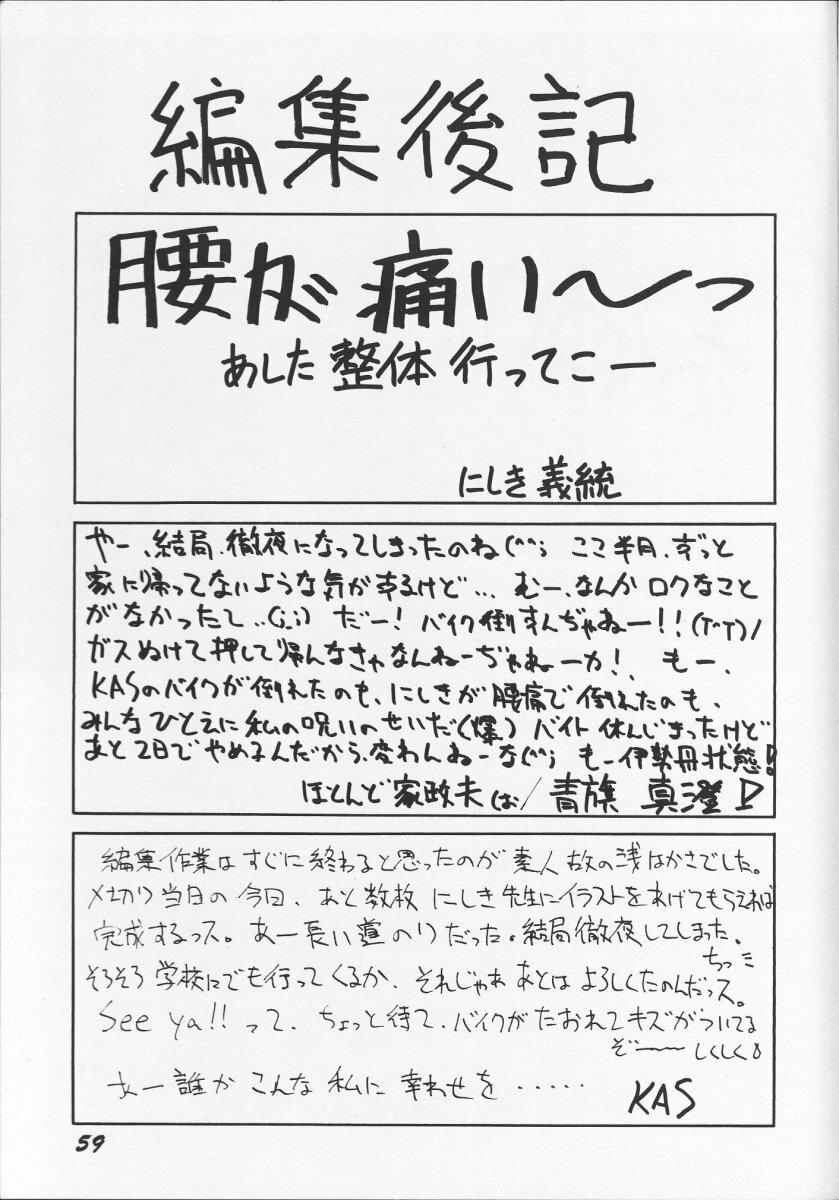 編集後記
腰が痛い〜っ
あした整体行ってこー
にしき義統
やー、結局、徹夜になってしまったのね(^^; ここ半月、ずっと
家に帰ってないような気がするけど… むー、なんかロクなこと
がなかったて..(;_;) だー! バイク倒すんぢゃねー!!(T^T)/
ガスぬけて押して帰んなきゃなんねーぢゃねーカ! もー、
KASのバイクが倒れたのも、にしきが腰痛で倒れたのも、
みんなひとえに私の呪いのせいだ(爆) バイト休んじまったけど
あと2日でやめるんだから、変わんねーな(^^; もー伊勢丹状態!
ほとんど家政夫 (お/青旗 真澄
編集作業はすぐに終わると思ったのが素人故の浅はかさでした。
〆切り当日の今日、あと数枚にしき先生にイラストをあげてもらえれば
完成するっス。あー長い道のりだった。結局徹夜してしまった。
ちっミ
そろそろ学校にでも行ってくるか、それじゃああとはよろしくたのんだっス。
See ya!! って、ちょっと待て、バイクがたおれてキズがついてる
ぞ〜〜 しくしく
あー誰かこんな私に幸わせを・・・・・
KAS
59